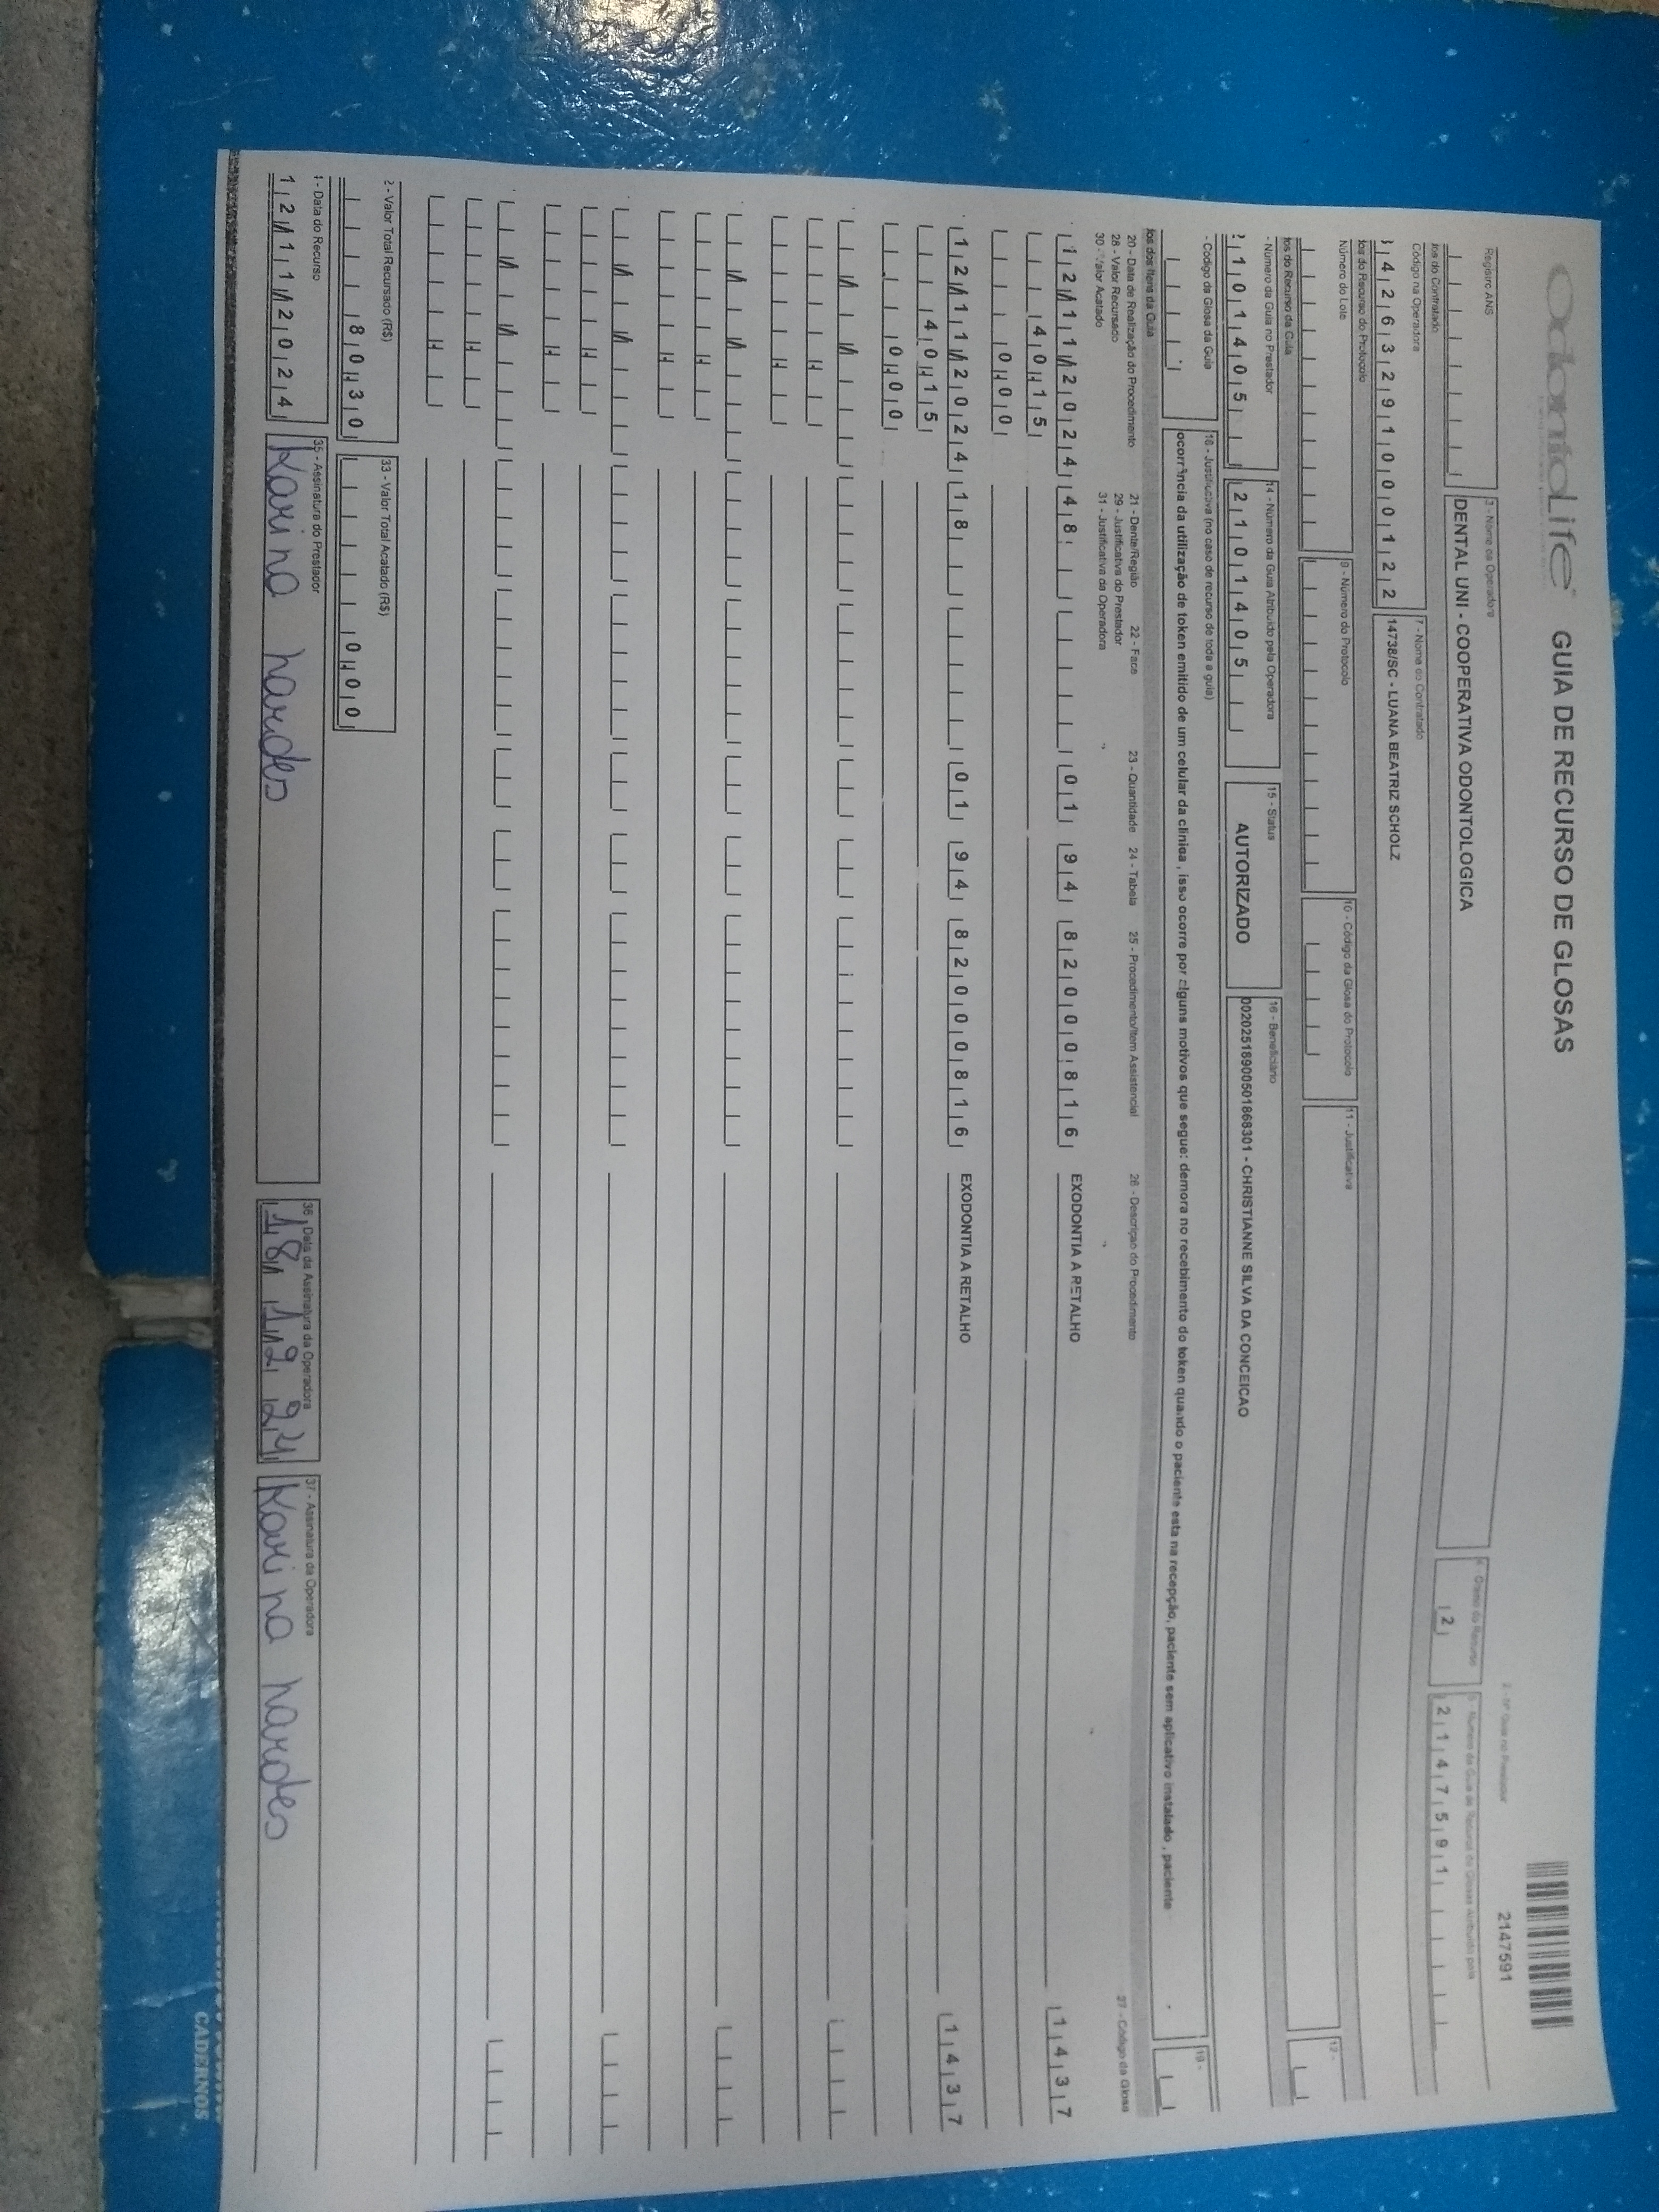 OdontoLife
GUIA DE RECURSO DE GLOSAS
2 - Nº Guia no Prestador
2147591
Registro ANS
3 - Nome da Operadora
DENTAL UNI - COOPERATIVA ODONTOLOGICA
4 - Objeto do Recurso
2
5 - Número da Guia de Recurso de Glosas Atribuído pela
2147591
dos do Contratado
Código na Operadora
42632910000122
7 - Nome do Contratado
14738/SC - LUANA BEATRIZ SCHOLZ
dos do Recurso do Protocolo
Número do Lote
9 - Número do Protocolo
10 - Código da Glosa do Protocolo
11 - Justificativa
12 -
dos do Recurso da Guia
- Número da Guia no Prestador
21014051
14 - Número da Guia Atribuído pela Operadora
21014051
15 - Status
AUTORIZADO
16 - Beneficiário
00202518900501868301 - CHRISTIANNE SILVA DA CONCEICAO
- Código da Glosa da Guia
18 - Justificativa (no caso de recurso de toda a guia)
ocorrência da utilização de token emitido de um celular da clinica , isso ocorre por alguns motivos que segue: demora no recebimento do token quando o paciente esta na recepção, paciente sem aplicativo instalado , paciente
19 -
dos dos Itens da Guia
20 - Data de Realização do Procedimento 21 - Dente/Região 22 - Face 23 - Quantidade 24 - Tabela 25 - Procedimento/Item Assistencial 26 - Descrição do Procedimento 27 - Código da Glosa
28 - Valor Recursado 29 - Justificativa do Prestador
30 - Valor Acatado 31 - Justificativa da Operadora
12/11/2024 48 01 94 82000816 EXODONTIA A RETALHO 1437
40,15
0,00
12/11/2024 18 01 94 82000816 EXODONTIA A RETALHO 1437
40,15
0,00
2 - Valor Total Recursado (R$)
80,30
33 - Valor Total Acatado (R$)
0,00
1 - Data do Recurso
12/11/2024
35 - Assinatura do Prestador
Karina nardes
36 - Data da Assinatura da Operadora
18 12 24
37 - Assinatura da Operadora
Karina nardes
CADERNOS